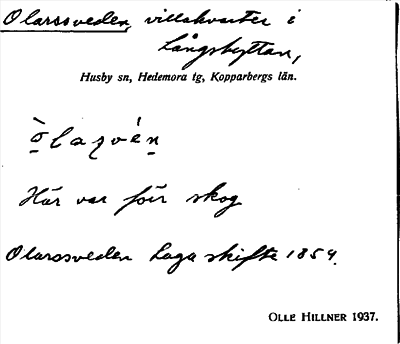 Olarssveden, villakvarter i
Långshyttan,
Husby sn, Hedemora tg, Kopparbergs län.
Här var förr skog
Olarssveden Laga skifte 1854.
OLLE HILLNER 1937.